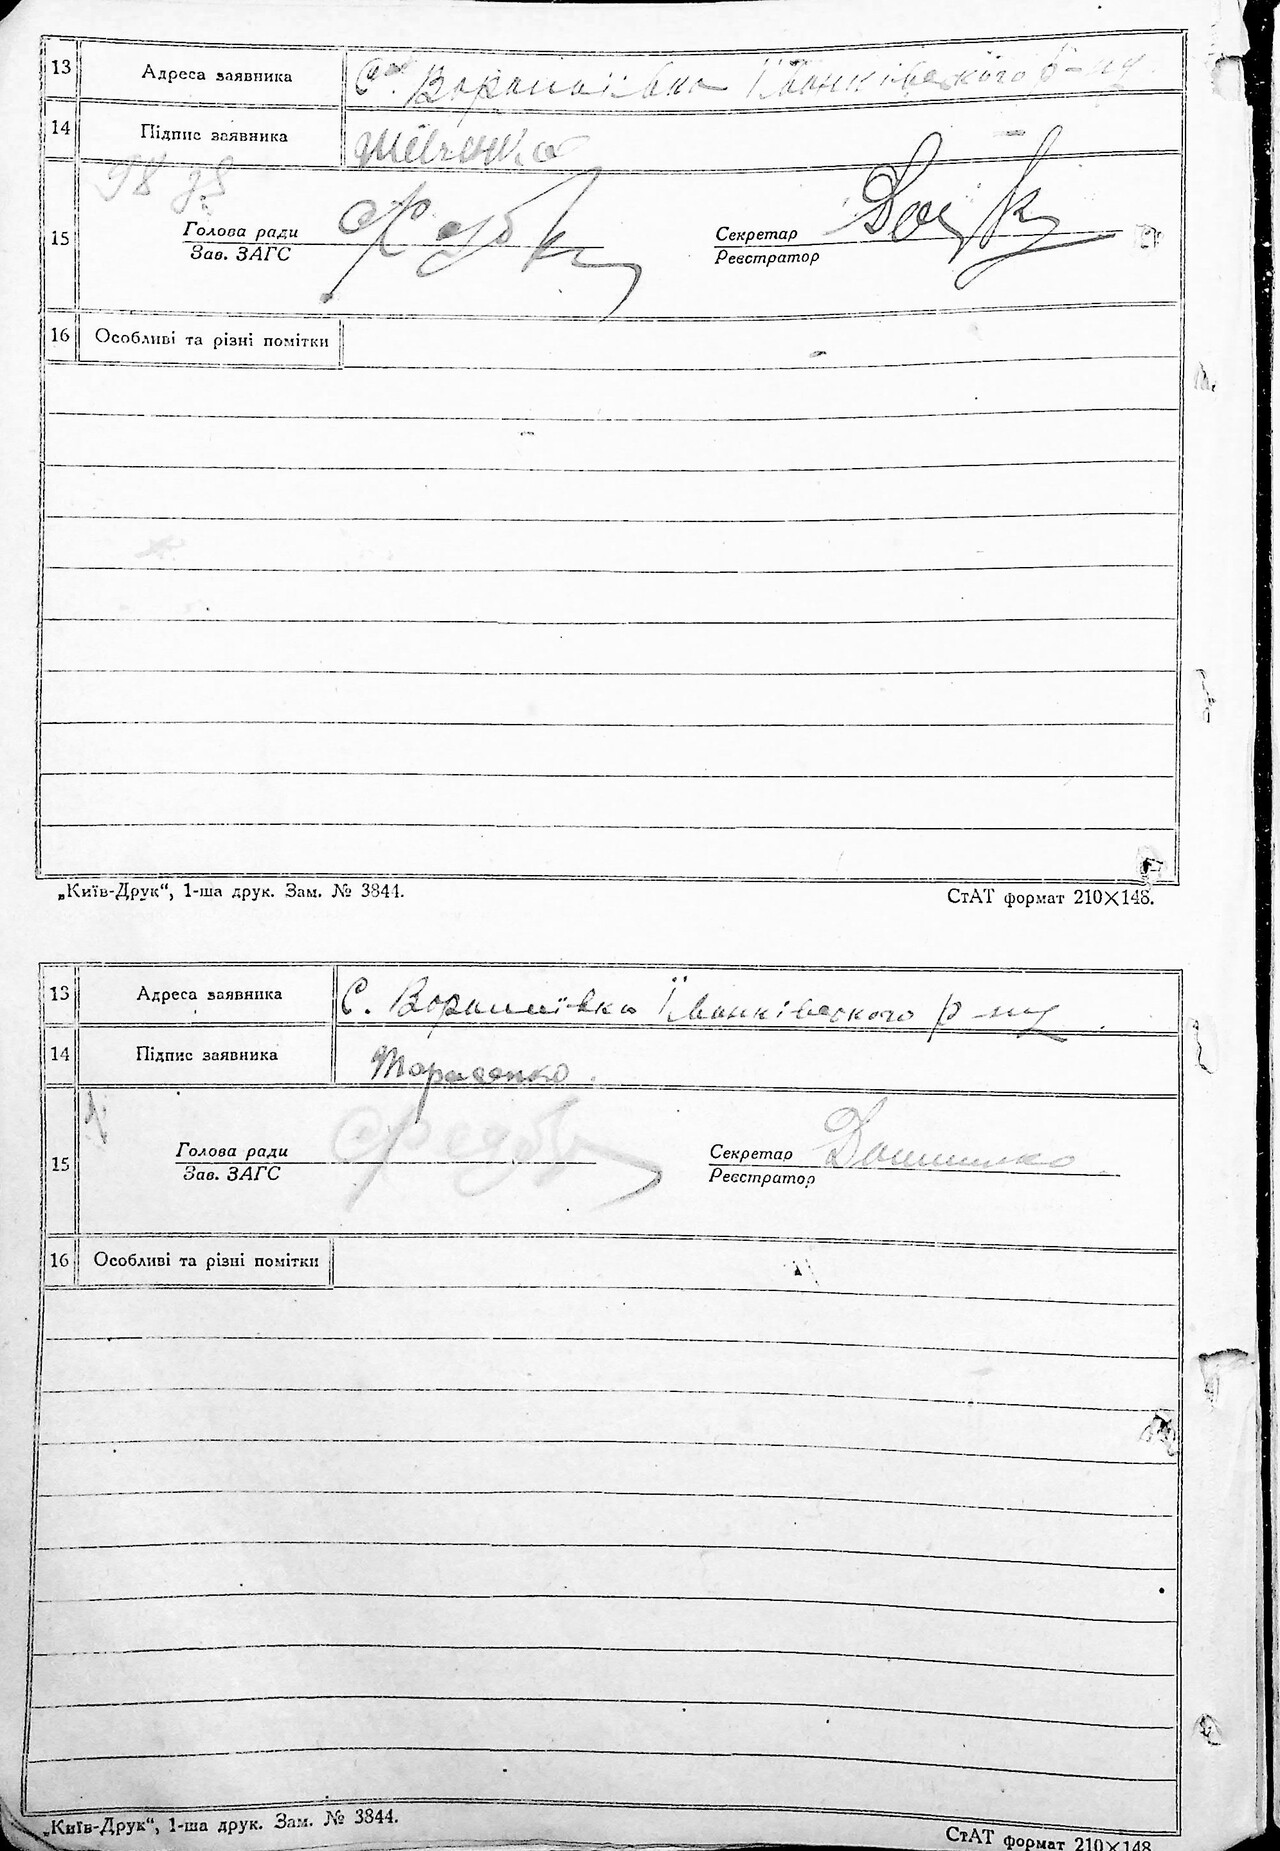 13 Адреса заявника С. Воропаївка Іванківського р-ну
14 Підпис заявника
15
Голова ради Секретар
Зав. ЗАГС Реєстратор
16 Особливі та різні помітки
„Київ-Друк“, 1-ша друк. Зам. № 3844. СтАТ формат 210×148.
13 Адреса заявника С. Воропаївка Іванківського р-ну
14 Підпис заявника Тарасенко
15
Голова ради Секретар
Зав. ЗАГС Реєстратор
16 Особливі та різні помітки
„Київ-Друк“, 1-ша друк. Зам. № 3844.
СтАТ формат 210×148